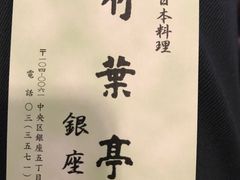 日本料理
竹葉亭
銀座
〒一〇四-〇〇六一 中央区銀座五丁目
電話 〇三(三五七一)